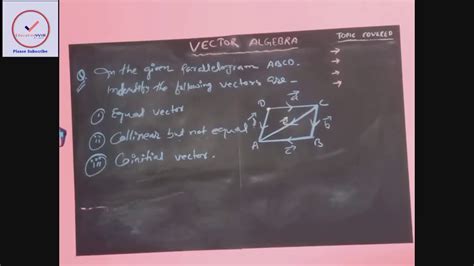 Please Subscribe
VECTOR ALGEBRA
TOPIC COVERED
Q. In the given parallelogram ABCD.
Indentify the following vectors are –
i) Equal vector
ii) Collinear but not equal
iii) Coinitial vector.
D a C
b
A c B